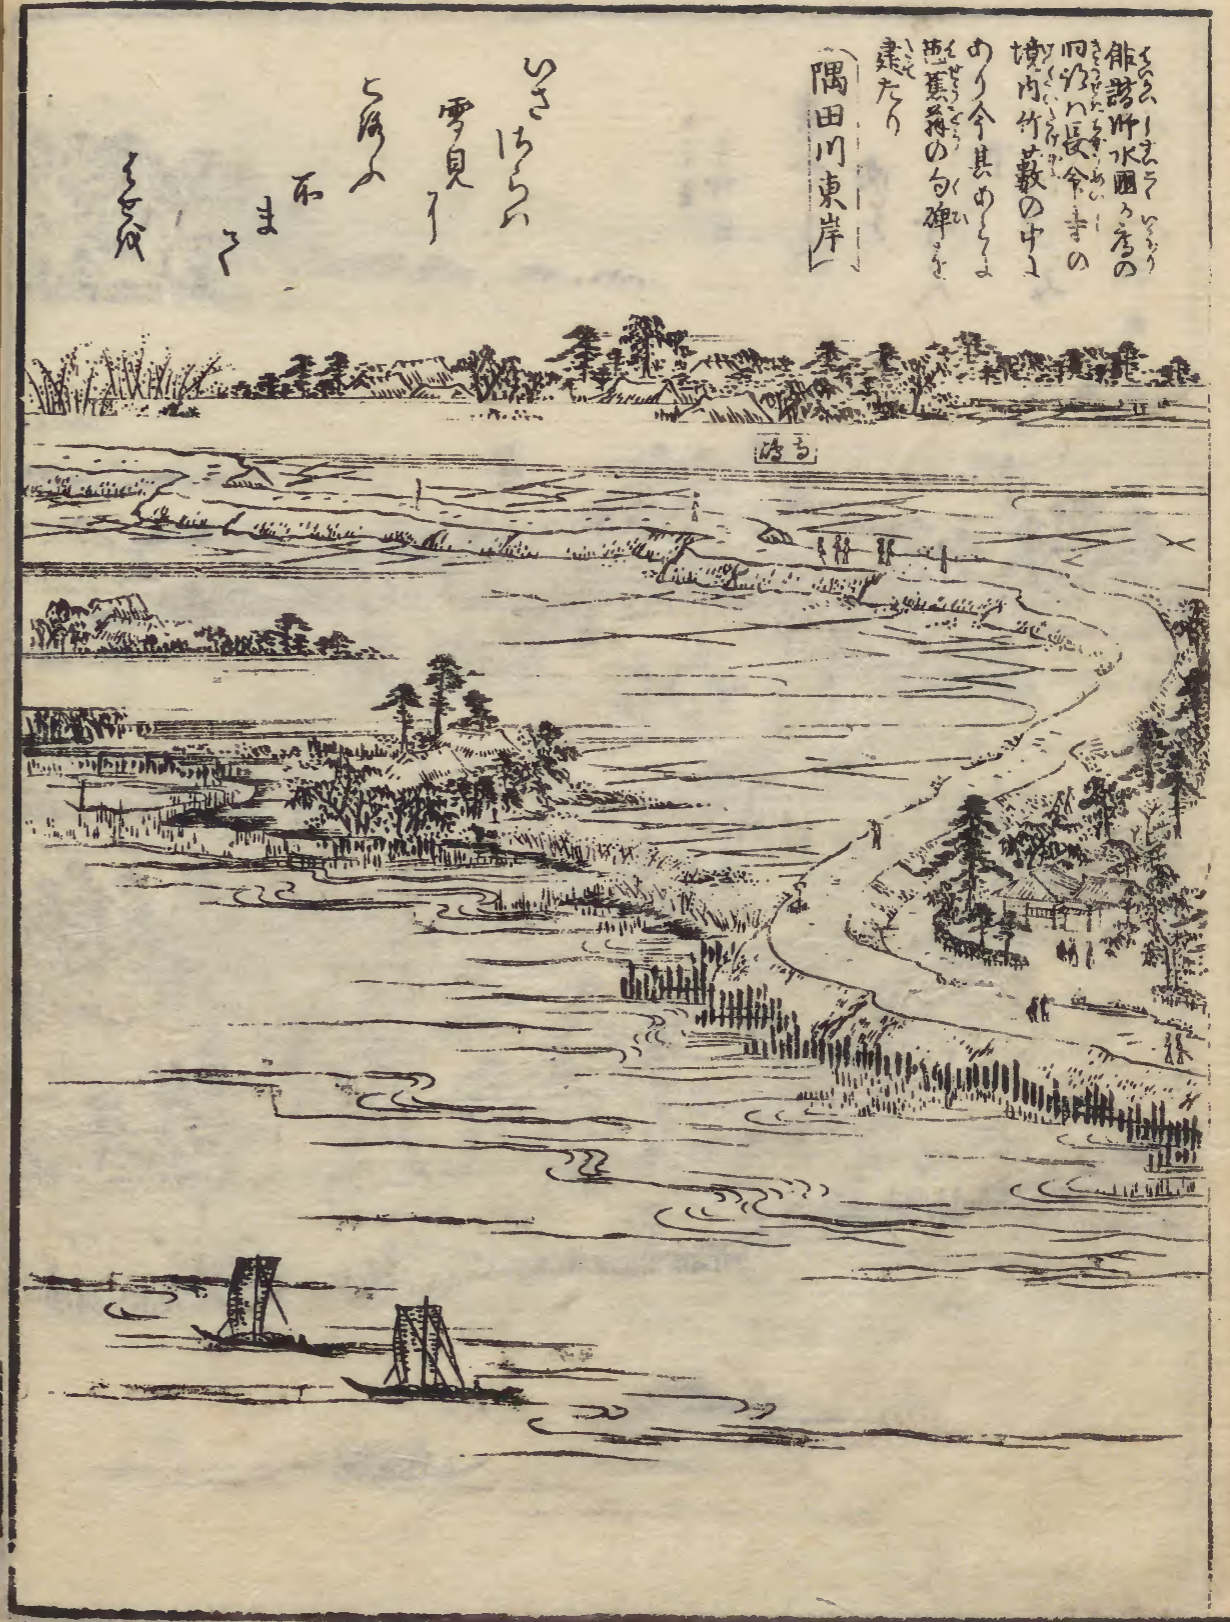 俳諧師水國か庵の
旧跡ハ長命寺の
境内竹藪の中に
あり今其あとに
芭蕉翁の句碑を
建たり
隅田川東岸
いさ
さらハ
雪見に
ころふ
所
まて
はせを
寺嶋